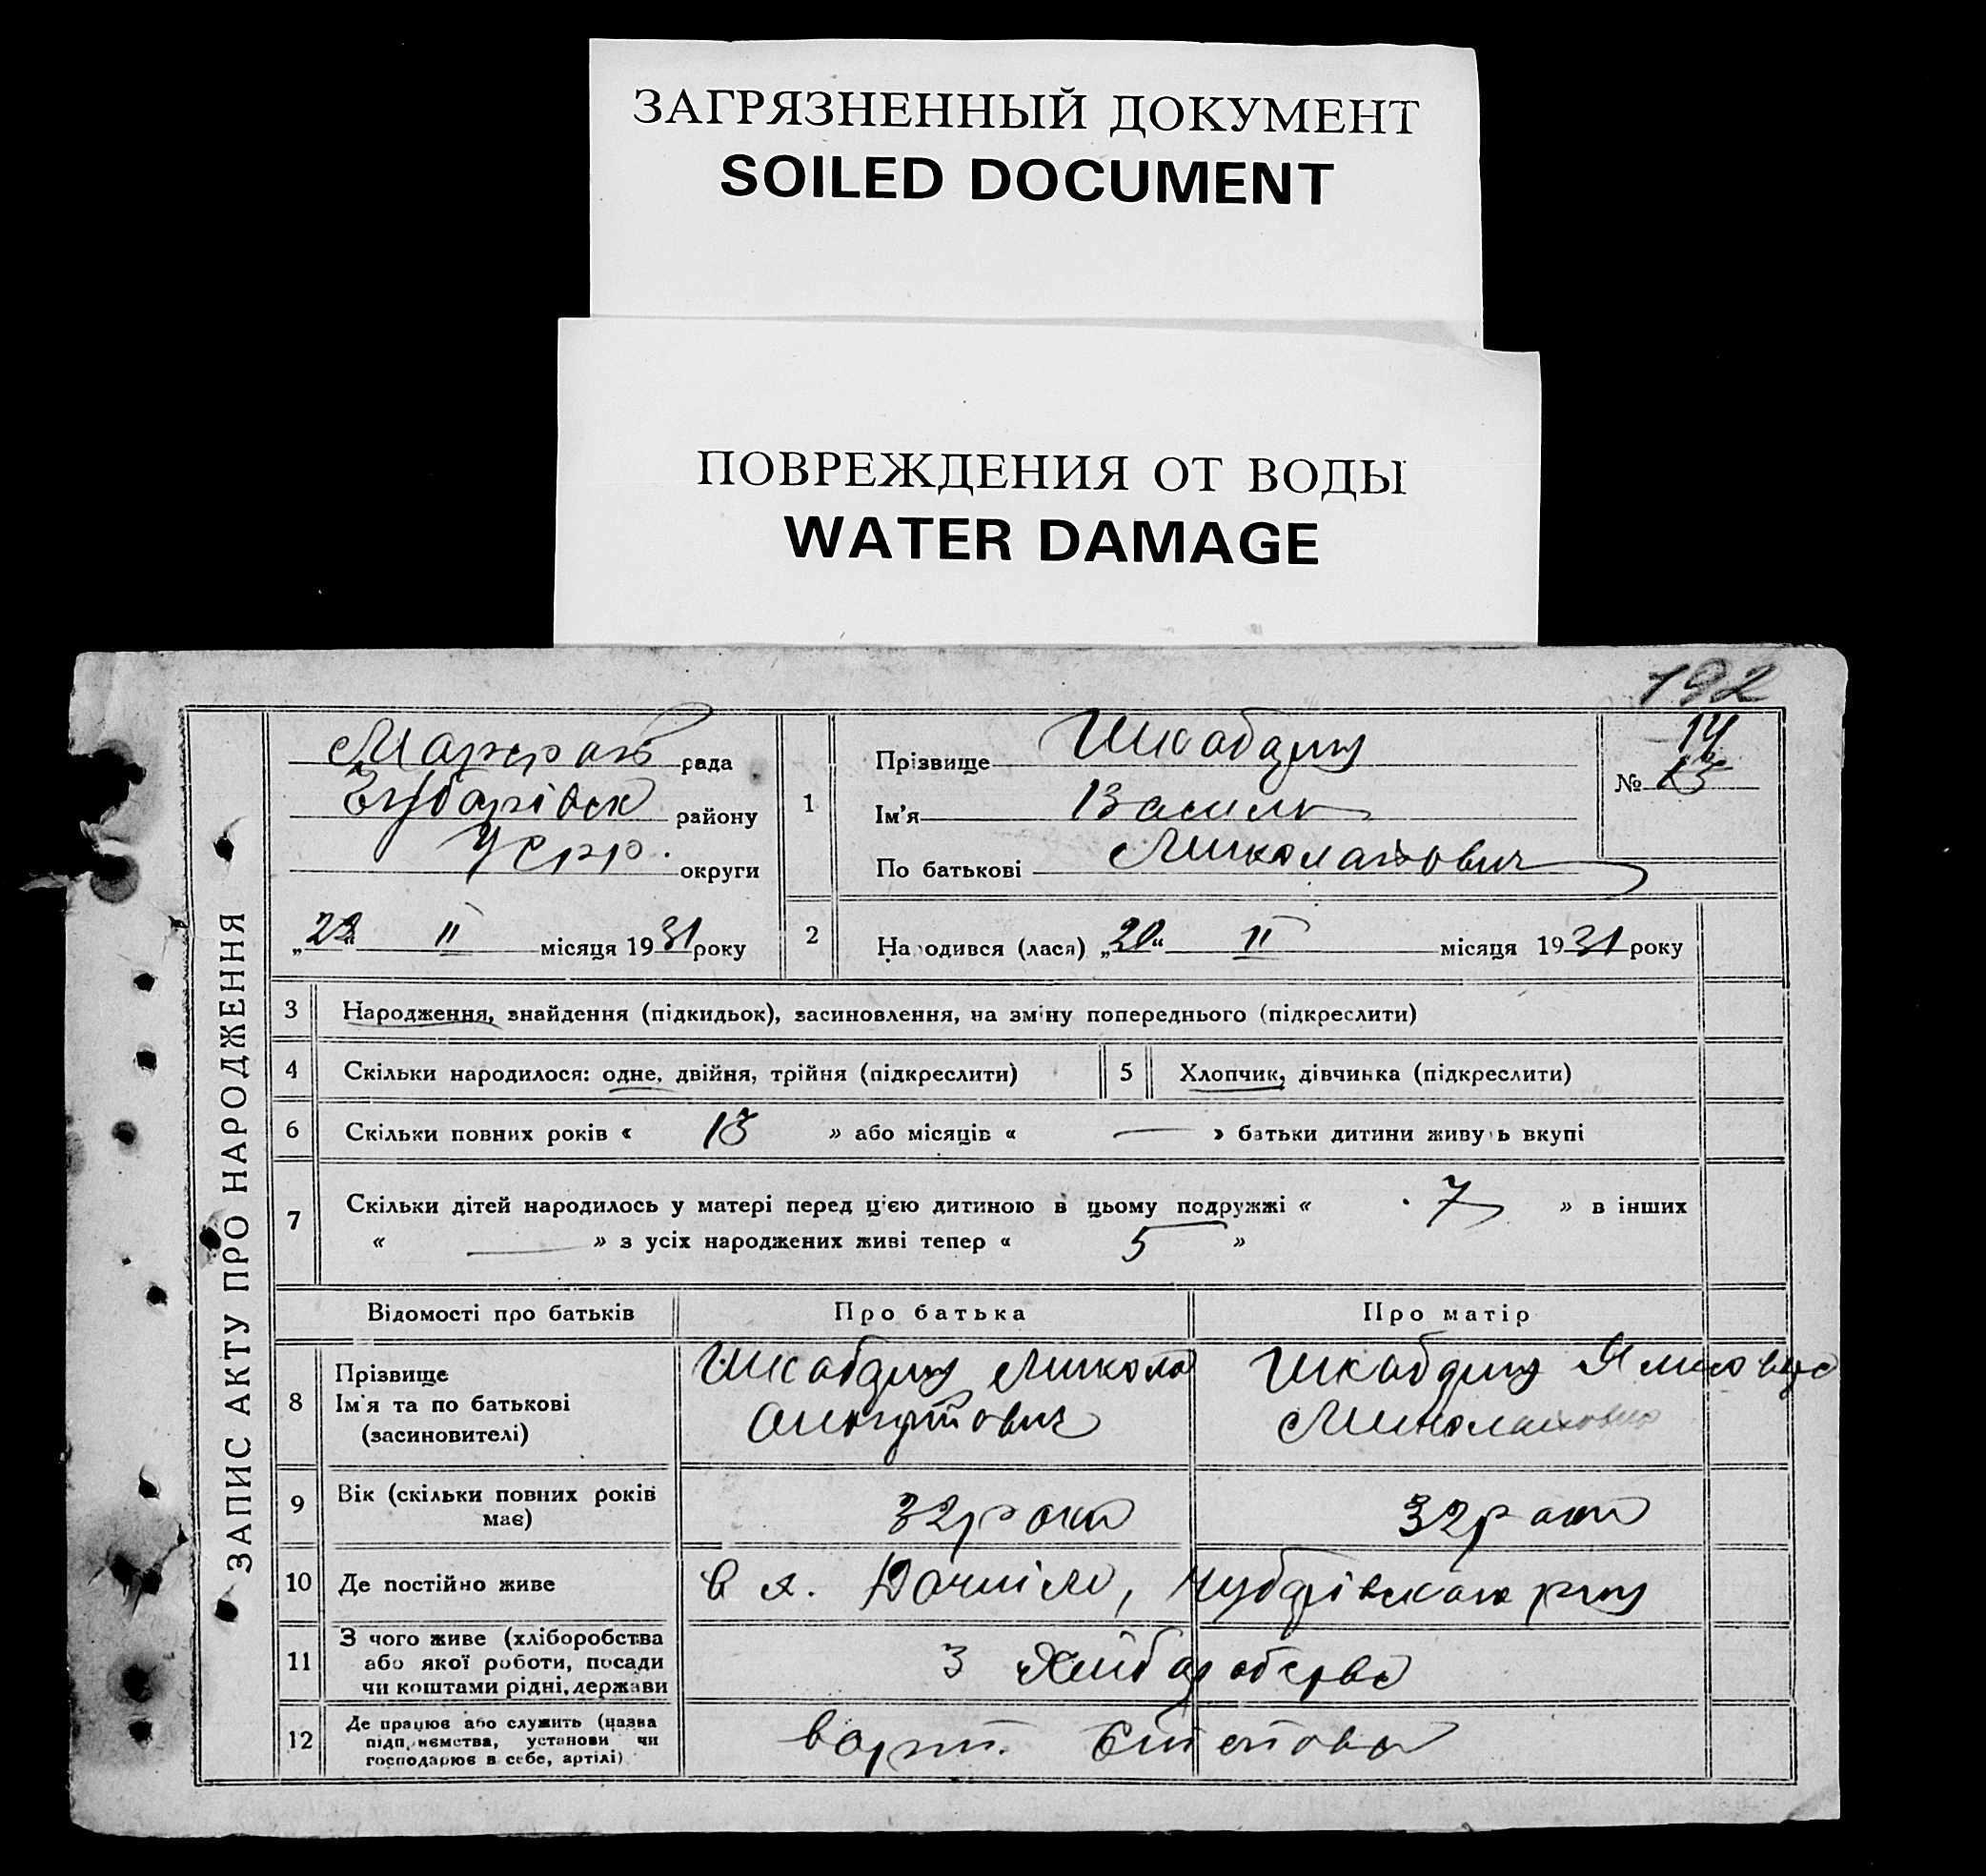 ЗАГРЯЗНЕННЫЙ ДОКУМЕНТ
SOILED DOCUMENT
ПОВРЕЖДЕНИЯ ОТ ВОДЫ
WATER DAMAGE
192
ЗАПИС АКТУ ПРО НАРОДЖЕННЯ
рада
району
УСРР. округи
„22“ II місяця 1931 року
1 Прізвище
Ім'я Василь
По батькові Миколайович
№ 14
2 Народився (лася) „20“ II місяця 1931 року
3 Народження, знайдення (підкидьок), засиновлення, на зміну попереднього (підкреслити)
4 Скільки народилося: одне, двійня, трійня (підкреслити)
5 Хлопчик, дівчинка (підкреслити)
6 Скільки повних років « 13 » або місяців « — » батьки дитини живуть вкупі
7 Скільки дітей народилось у матері перед цією дитиною в цьому подружжі « 7 » в інших
« — » з усіх народжених живі тепер « 5 »
Відомості про батьків Про батька Про матір
8 Прізвище
Ім'я та по батькові
(засиновителі)
Микола
Миколаївна
9 Вік (скільки повних років
має)
32 роки 32 роки
10 Де постійно живе
в х.
11 З чого живе (хліборобства
або якої роботи, посади
чи коштами рідні, держави
З Хліборобства
12 Де працює або служить (назва
підприємства, установи чи
господарює в себе, артілі)